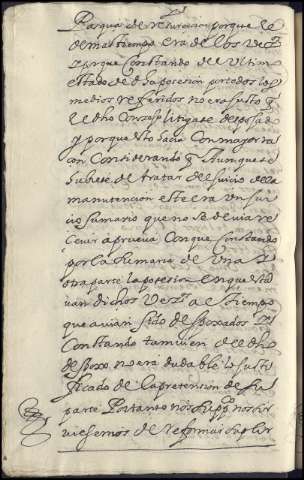 Pasqua de resureccion porque lo
demas tiempo era de los vecos
y porque constando del ultimo
estado de dha posesion por todos los
medios referidos no era justo q
el dho Consso litigase despojado
y porque esto hacia con mayor ra
con Considerando q Aunque se
hubiese de tratar del juicio de la
manutencion este era un jui
cio sumario que no se devia re
cevir a prueva Con que constando
por la sumaria de una y
otra parte la posesion en que esta
van dichos vecos al tiempo
que avian sido despoxados y
Constando tamvien de el dho
despoxo no era dudable lo justi
ficado de la pretension de su
parte Por tanto nos suppco nos sir
viesemos de reformar suplir